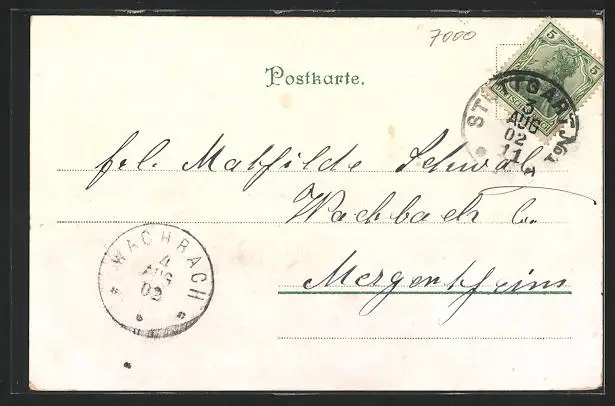 7000
Postkarte.
5 5
STUTTGART No 1
3
AUG
02
11
frl. Mathilde Schwab
Wachbach b.
Mergentheim
WACHBACH
4
AUG
02